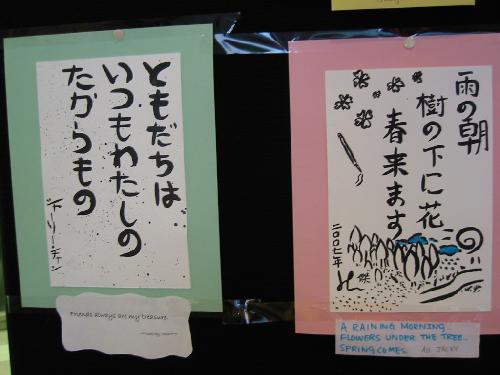 ともだちは
いつもわたしの
たからもの
Friends always are my treasure.
雨の朝
樹の下に花
春来ます
二〇〇七年
A RAINING MORNING..
FLOWERS UNDER THE TREE..
SPRING COMES.
AU JACKY